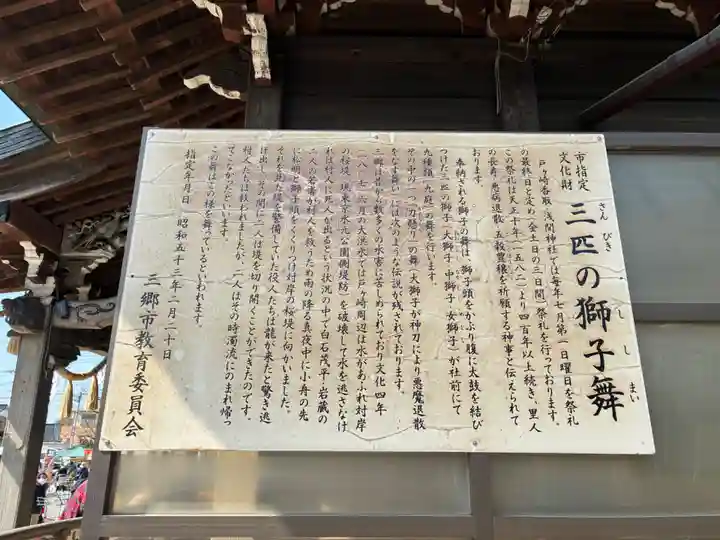 市指定
文化財
三匹の獅子舞
さんびきのししまい
戸ヶ崎香取、浅間神社では毎年七月第一日曜日を祭礼
の最終日と定め、金・土・日の三日間、祭礼を行っております。
この祭礼は天正十年(一五八二)より四百年以上続き、里人
の長寿、悪病退散、五穀豊穣を祈願する神事と伝えられて
おります。
奉納される獅子の舞は、獅子頭をかぶり腹に太鼓を結び
つけた三匹の獅子(大獅子、中獅子、女獅子)が社前にて
九種類(九庭)の舞を行います。
その中の一つ刀懸りの舞(大獅子が神刀により悪魔退散
をなす舞い)には次のような伝説が残されております。
三郷は昔から数多くの水害に苦しめられており文化四年
(一八〇七)六月の大洪水では戸ヶ崎周辺は水があふれ対岸
の桜堤(現東京水元公園側堤防)を破壊して水を逃さなけ
れば村人に死人が出るという状況の中で白石茂平・岩蔵の
二人の若者が村人を救うため雨の降る真夜中に小舟の先
に松明と獅子頭をくくりつけ対岸の桜堤に向かいました。
それを見た堤を警備していた役人たちは龍が来たと驚き逃
げ出し、その間に二人は堤を切り開くことができたのです。
村人たちは救われましたが、二人はその時濁流にのまれ帰っ
てこなかったといいます。
この舞はこの様を舞っているといわれます。
指定年月日 昭和五十三年二月二十日
三郷市教育委員会